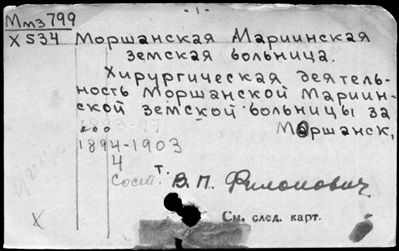 - 1 -
Ммз 799
X 534 Моршанская Мариинская
земская больница.
Хирургическая деятель-
ность Моршанской Мариин-
ской земской больницы за
... Моршанск,
1894-1903
4 т.
Сост. В. П. Филонович
X
См. след. карт.